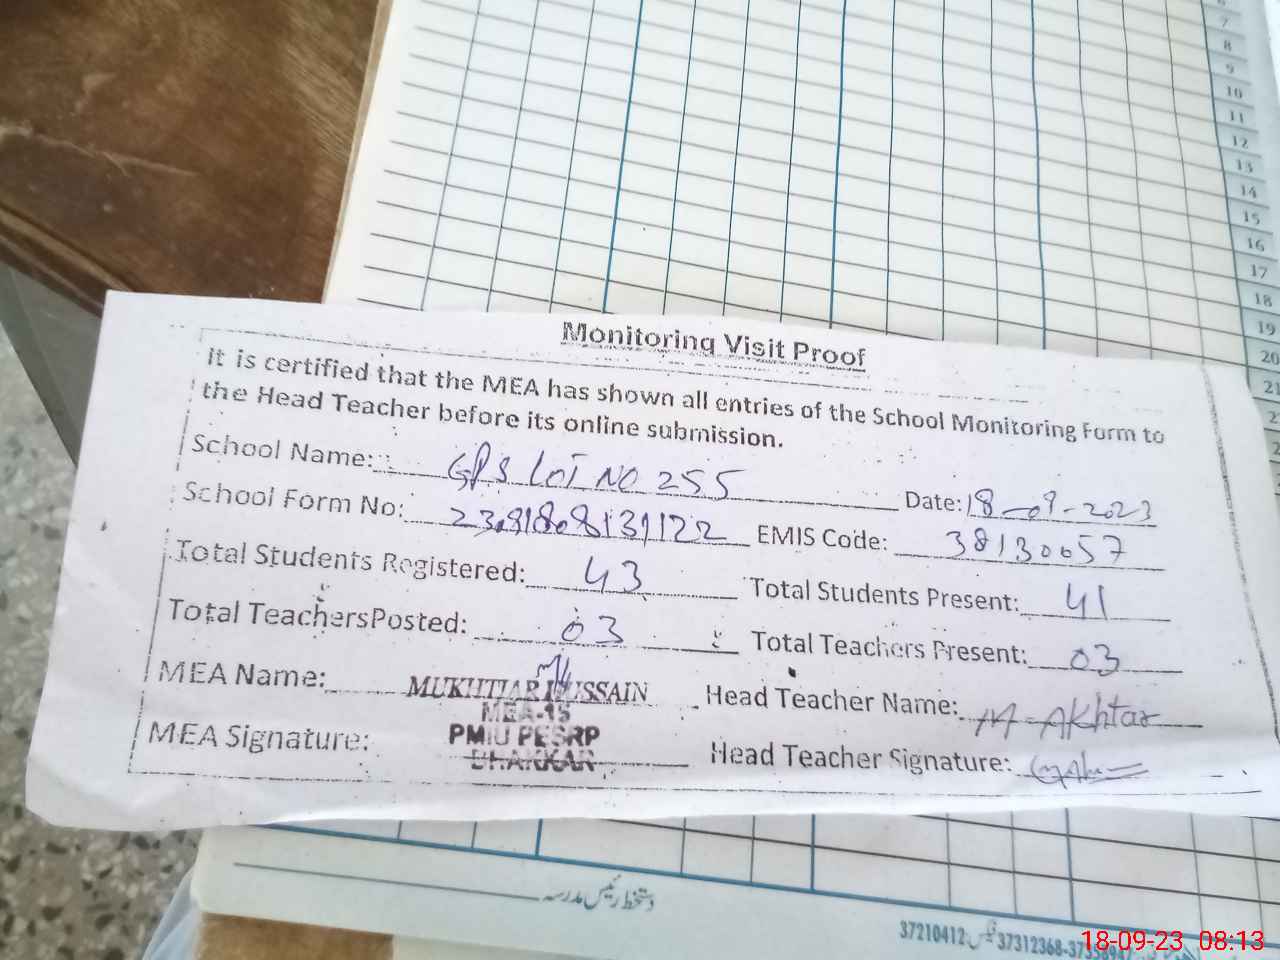 6
7
8
9
10
11
12
13
14
15
16
17
18
19
20
21
Monitoring Visit Proof
It is certified that the MEA has shown all entries of the School Monitoring Form to
the Head Teacher before its online submission.
School Name: GPS LOT NO 255 Date: 18-09-2023
School Form No: EMIS Code: 38130057
Total Students Registered: 43 Total Students Present: 41
Total TeachersPosted: 03 Total Teachers Present: 03
MEA Name: MUKHTIAR HUSSAIN Head Teacher Name: M-Akhtar
MEA-15
MEA Signature: PMIU PESRP Head Teacher Signature:
BHAKKAR
دستخط رئیس مدرسہ
37210412 فیکس 37312368
18-09-23 08:13